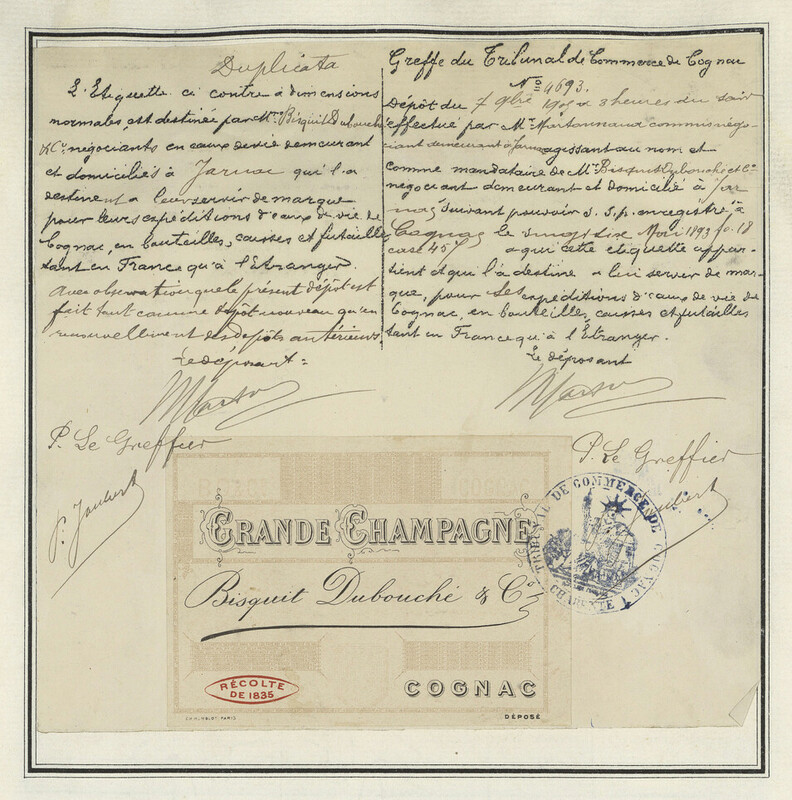 Duplicata
L'Etiquette ci contre à dimensions
normales, est destinée par Mrs Bisquit Dubouché
& Co. négociants en eaux de vie demeurant
et domiciliés à Jarnac qu'il a
destinent a leur servir de marque
pour leurs expéditions d'eaux de vie de
Cognac, en bouteilles, caisses et futailles
tant en France qu'à l'Etranger.
Avec observation que le présent dépôt est
fait tant comme dépôt nouveau qu'en
renouvellement des dépôts antérieurs
Le déposant =
P. Le Greffier
P. Joubert
Greffe du Tribunal de Commerce de Cognac
No 4693.
Dépôt du 7 9bre 1905 a 3 heures du soir
effectué par Mr commis négo-
ciant demeurant à Jarnac agissant au nom et
comme mandataire de Mrs Bisquit Dubouché et Co
négociant demeurant et domicilié à Jar
nac suivant pouvoir s. s. p. enregistré à
Cognac le Mai 1893 fo. 18
case 457 a qui cette etiquette appar-
tient et qui l'à destine a lui server de mar-
que, pour ses expéditions d'eaux de vie de
Cognac, en bouteilles, caisses et futailles
tant en France qu'à l'Etranger.
Le déposant
P. Le Greffier
Joubert
GRANDE CHAMPAGNE
Bisquit Dubouché & Co.
RÉCOLTE
DE 1835
COGNAC
CH. HUMBLOT PARIS
DÉPOSÉ
TRIBUNAL DE COMMERCE DE COGNAC
CHARENTE